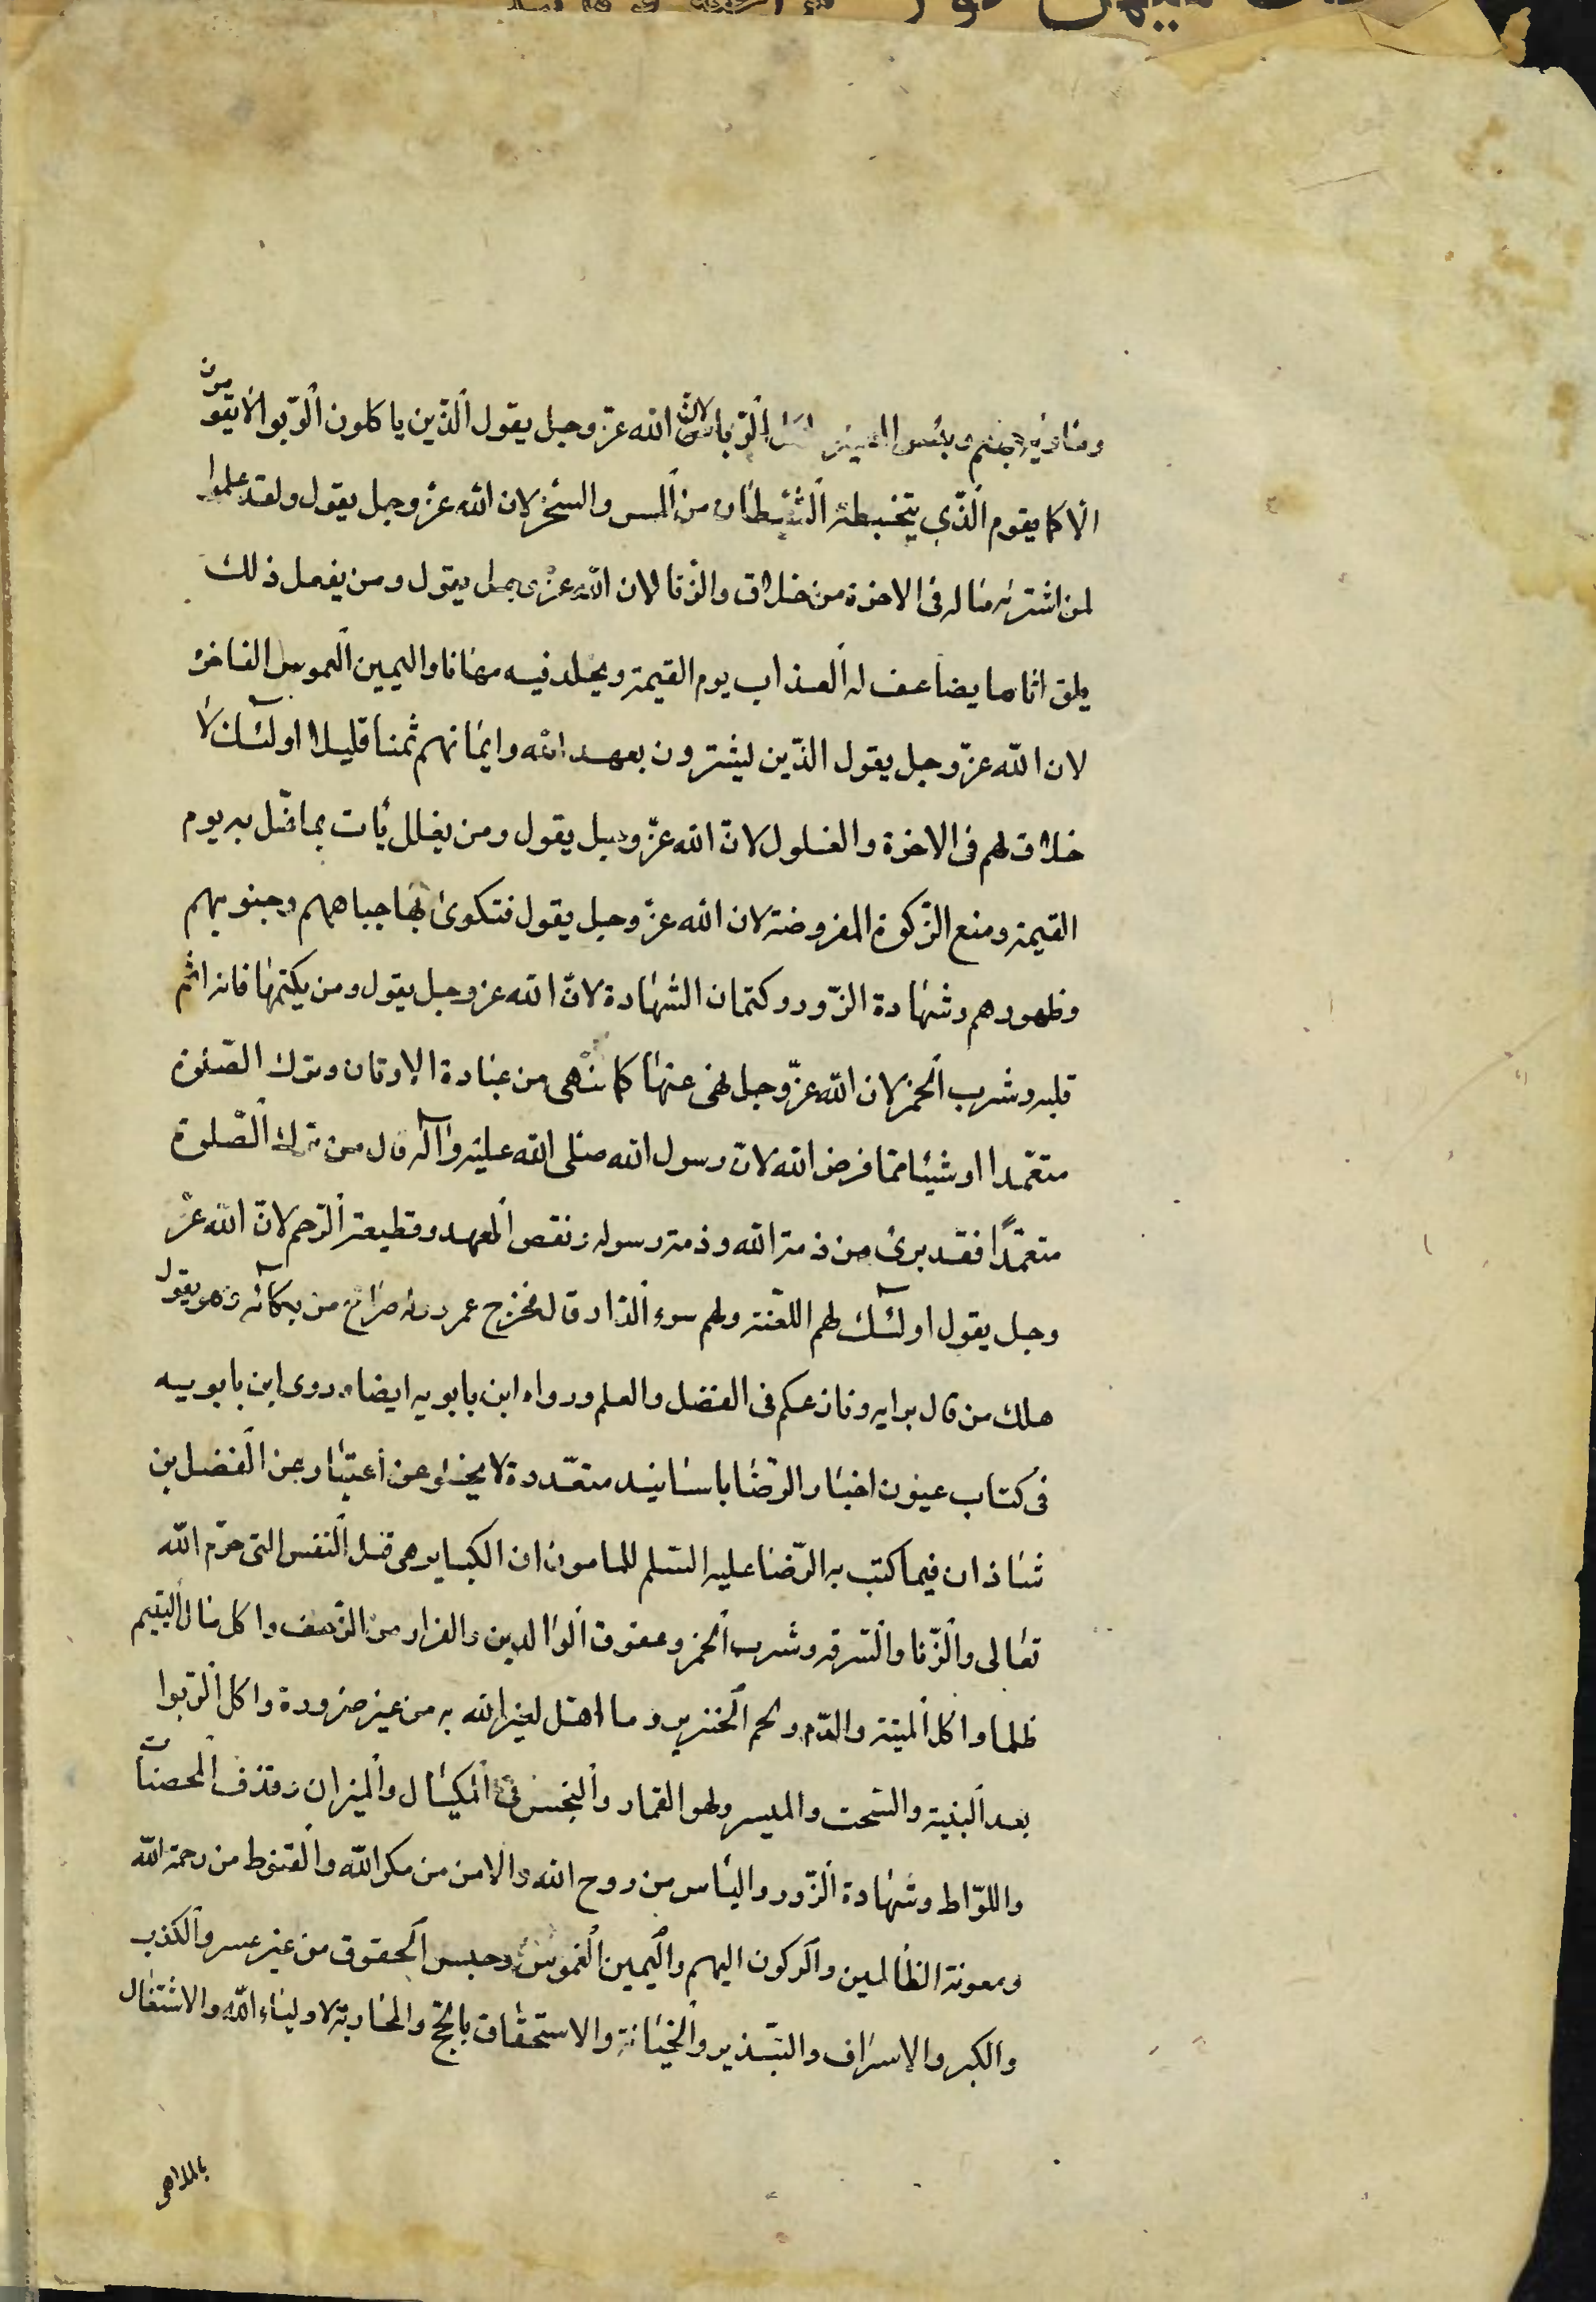 ومأويه جهنم وبئس المصير واكل الرّبا لانّ الله عزّ وجل يقول الّذين ياكلون الرّبوا لا يقومون
الا كما يقوم الّذي يتخبطه الشّيطان من المس والسّحر لان الله عزّ وجل يقول ولقد علموا
لمن اشتريه ماله فى الاخرة من خلاق والزّنا لان الله عزّ وجل يقول ومن يفعل ذلك
يلق اثاما يضاعف له العذاب يوم القيمة ويخلد فيه مهانا واليمين الغموس الفاجرة
لان الله عزّ وجل يقول الذّين يشترون بعهد الله وايمانهم ثمنا قليلا اولئك لا
خلاق لهم فى الاخرة والغلول لانّ الله عزّ وجل يقول ومن يغلل يأت بما غل به يوم
القيمة ومنع الزّكوة المفروضة لان الله عزّ وجل يقول فتكوى بها جباههم وجنوبهم
وظهورهم وشهادة الزّور وكتمان الشهادة لانّ الله عز وجل يقول ومن يكتمها فانه اثم
قلبه وشرب الخمر لان الله عزّ وجل نهى عنها كما نهى من عبادة الاوثان وترك الصّلوة
متعمّدا او شيئا ممّا فرض الله لانّ رسول الله صلى الله عليه وآله قال من ترك الصّلوة
متعمّدًا فقد برئ من ذمة الله وذمة رسوله ونقض العهد وقطيعة الرّحم لانّ الله عزّ
وجل يقول اولئك لهم اللّعنة ولهم سوء الدّار قال فخرج عمرو وله صراخ من بكائه وهو يقول
هلك من قال برايه ونازعكم فى الفضل والعلم ورواه ابن بابويه ايضا وروى ابن بابويه
فى كتاب عيون اخبار الرّضا باسانيد متعدّدة لا يخلو عن اعتبار عن الفضل بن
شاذان فيما كتب به الرّضا عليه السّلم للمامون ان الكباير هى قتل النّفس التى حرّم الله
تعالى والزّنا والسّرقه وشرب الخمر وعقوق الوالدين والفرار من الزّحف واكل مال اليتيم
ظلما واكل الميتة والدّم ولحم الخنزير وما اهل لغير الله به من غير ضرورة واكل الرّبوا
بعد البيّنة والسّحت والميسر ولهو القمار والبخس فى المكيال والميزان وقذف المحصنات
واللوّاط وشهادة الزّور والياس من روح الله والامن من مكر الله والقنوط من رحمة الله
ومعونة الظالمين والركون اليهم واليمين الغموس وحبس الحقوق من غير عسر والكذب
والكبر والاسراف والتبّذير والخيانة والاستخفاف بالحج والمحاربة لاولياء الله والاشتغال
بالملاهى